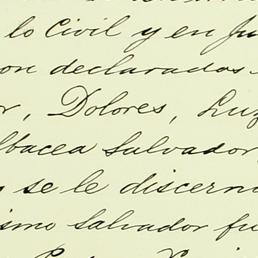 lo Civil y en Ju
on declarados
r, Dolores, Luz
lbacea Salvador,
se le discerni
ismo Salvador fu